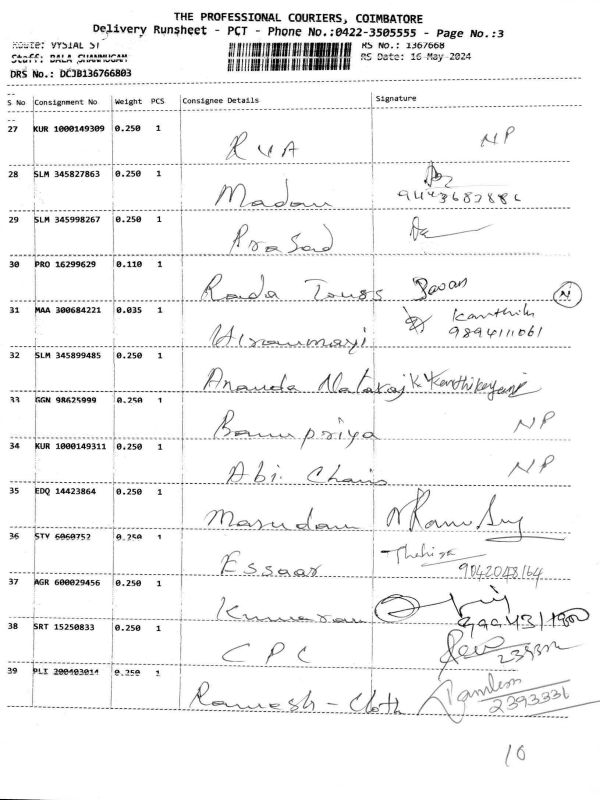 THE PROFESSIONAL COURIERS, COIMBATORE
Delivery Runsheet - PCT - Phone No.:0422-3505555 - Page No.:3
Route: VYSIAL ST RS No.: 1367668
Staff: BALA SHANMUGAM RS Date: 16-May-2024
DRS No.: DCJB136766803
S No Consignment No Weight PCS Consignee Details Signature
27 KUR 1000149309 0.250 1 RVA NP
28 SLM 345827863 0.250 1 Madan
29 SLM 345998267 0.250 1 Prasad
30 PRO 16299629 0.110 1 Rada Tours
N
31 MAA 300684221 0.035 1 Hiranmayi Karthik
9894111061
32 SLM 345899485 0.250 1 Ananda Nataraj K Karthikeyani
33 GGN 98625999 0.250 1 Banupriya NP
34 KUR 1000149311 0.250 1 Abi Chains NP
35 EDQ 14423864 0.250 1 Masudam
36 STV 6060752 0.250 1 Essaar
9042048164
37 AGR 600029456 0.250 1 Kumaran
38 SRT 15250833 0.250 1 CPC
39 PLI 200403014 0.250 1 Ramesh - Cloth
2393336
10